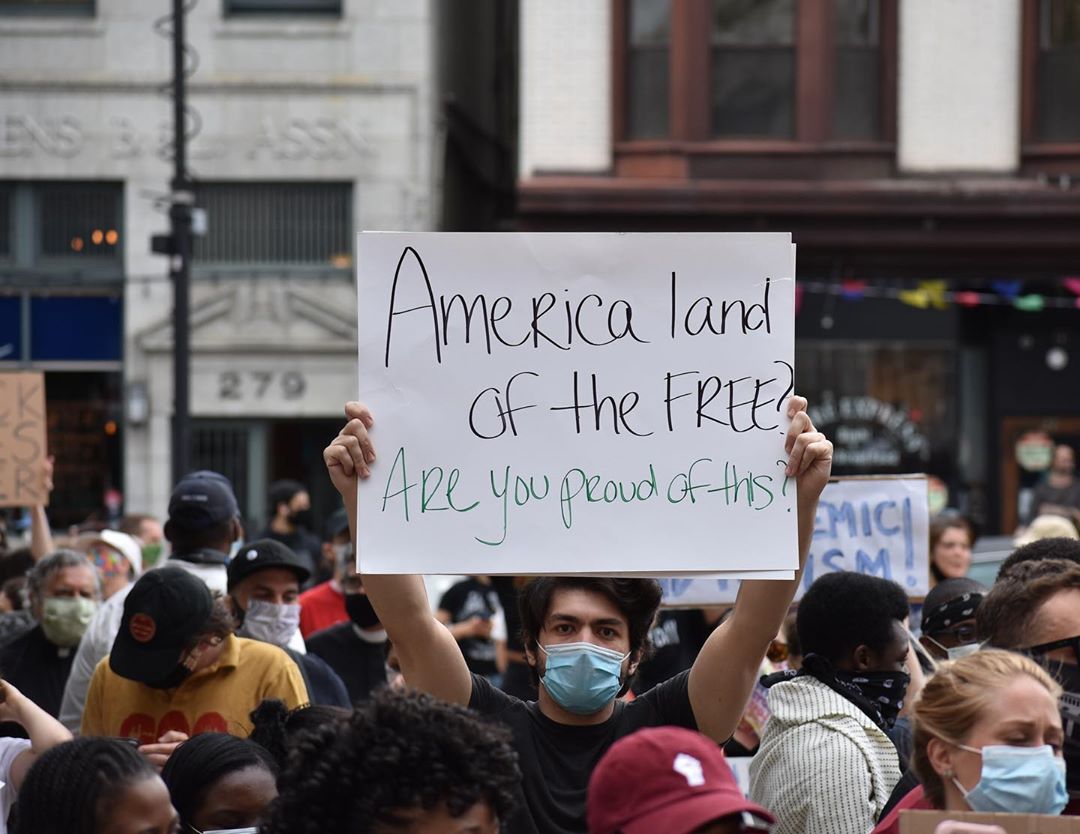 ENS B & L ASSN
279
America land
of the FREE?
Are you proud of this?
K
S
ER
EMIC!
ISM
EXPRESS